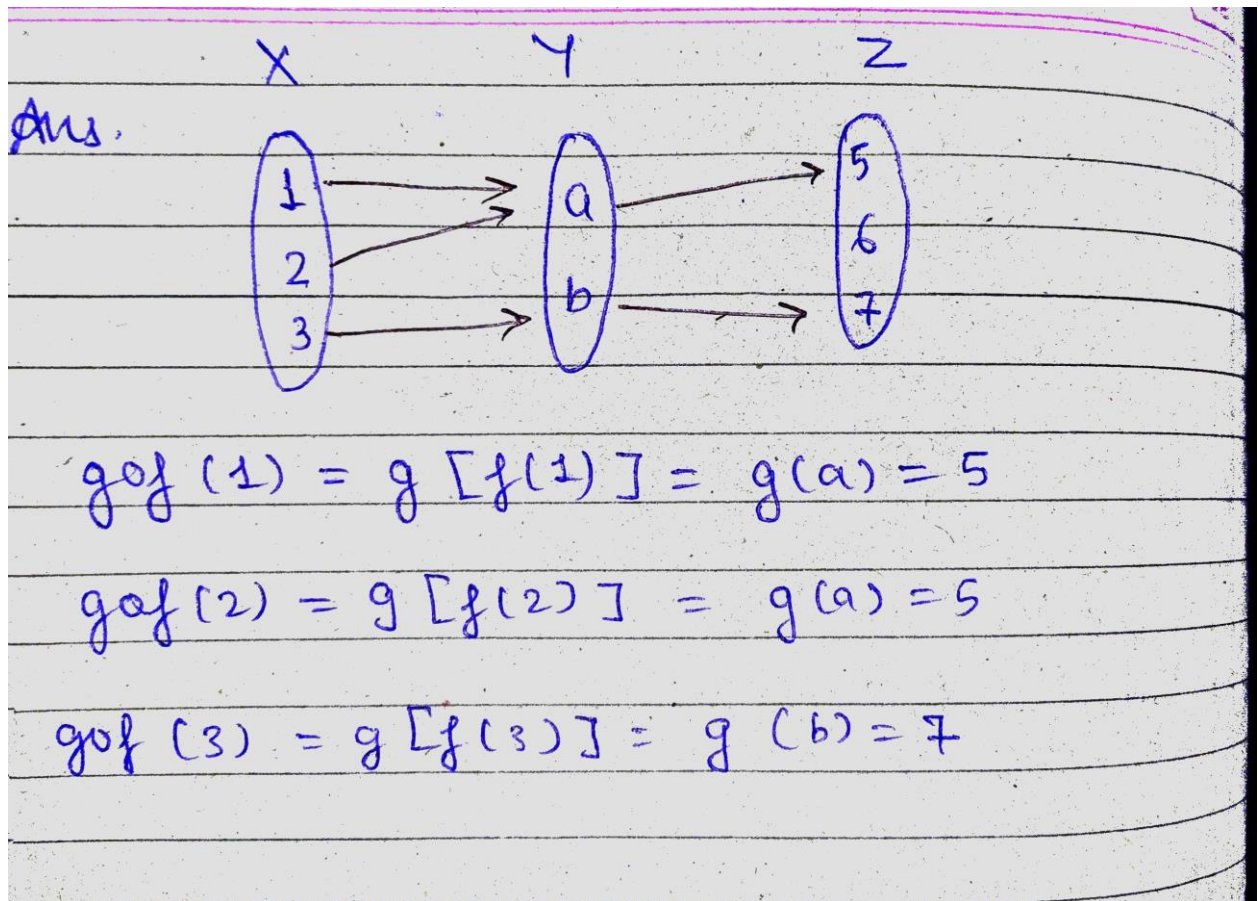 X Y Z
Ans.
1 a 5
2 6
3 b 7
gof (1) = g [f(1)] = g(a) = 5
gof (2) = g [f(2)] = g(a) = 5
gof (3) = g [f(3)] = g (b) = 7